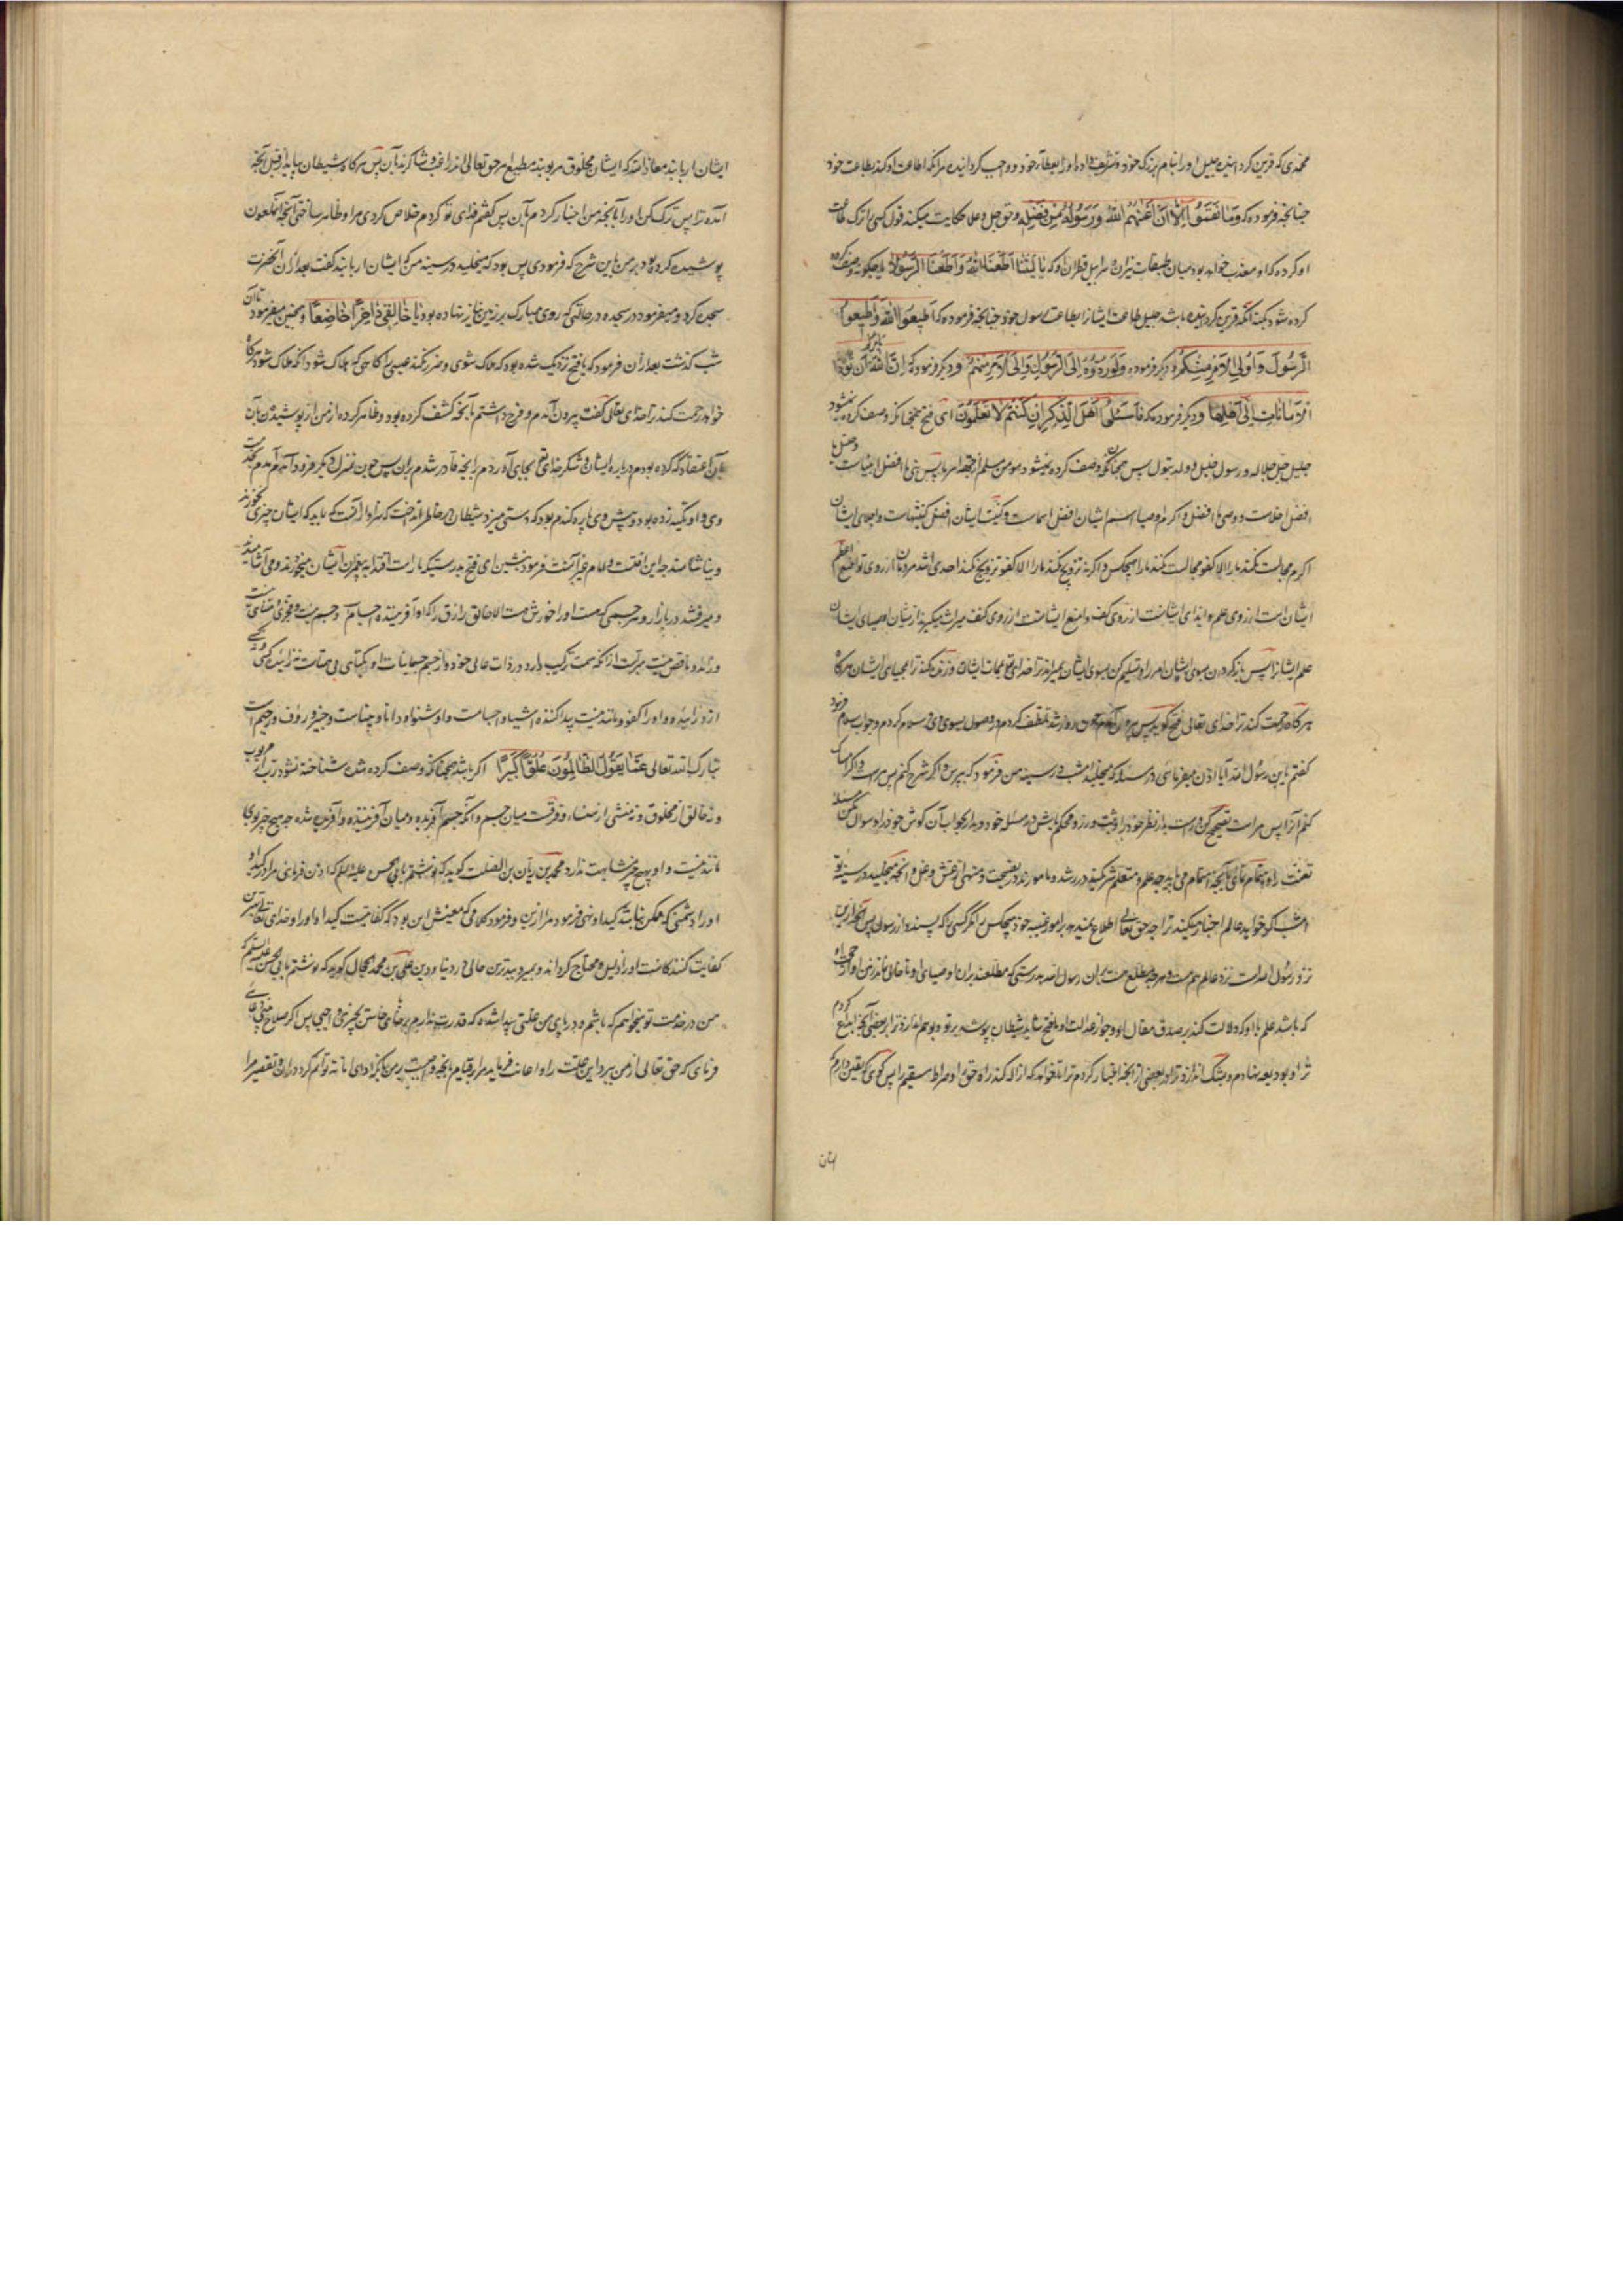 محمدی که قرین کرد اینده جلیل او را بنام بزرگ خود و تشریف داد او را بعطاء خود و واجب گردانیده مر آنکه اطاعت او کند بطاعت خود
چنانچه فرموده که وَمَا نَقَمُوا اِلّا اَنْ اَغْنٰهُمُ اللهُ وَرَسُولُهُ مِنْ فَضْلِه و حق جل و علا حکایت میکند قول کسی را که ترک طاعت
او کرده که او معذب خواهد بود میان طبقات نیران و سرابیل قطران او که یَا لَیْتَنَا اَطَعْنَا اللهَ وَاَطَعْنَا الرَّسُولَا یا چگونه وصف کرده
کرده شود بکنه آنکه قرین گردانیده باشد جلیل طاعت ایشانرا بطاعت رسول خود چنانچه فرموده که اَطِیعُوا اللهَ وَاَطِیعُوا
الرَّسُولَ وَاُولِی الْاَمْرِ مِنْکُمْ و دیگر فرموده وَلَوْ رَدُّوهُ اِلَی الرَّسُولِ وَاِلٰی اُولِی الْاَمْرِ مِنْهُمْ و دیگر فرموده که اِنَّ اللهَ یَاْمُرُکُمْ اَنْ تُؤَدُّوا
الْاَمَانَاتِ اِلٰی اَهْلِهَا و دیگر فرموده که فَاسْئَلُوا اَهْلَ الذِّکْرِ اِنْ کُنْتُمْ لَا تَعْلَمُونَ ای فتح همچنانکه وصف کرده نمیشود
جلیل جل جلاله و رسول خلیل و ولد بتول پس همچنانکه وصف کرده نمیشود مومن مسلم از جهة امر ما پس نبی ما افضل انبیاست و خلیل ما
افضل اخلاست و وصی ما افضل و اکرم اوصیا اسم ایشان افضل اسماست و کنیت ایشان افضل کنیتهاست و اجلای ایشان
اگر مجالست نکند ما را الا کفو مجالست نکند ما را هیچکس و اگر نه تزویج نکند ما را الا کفو تزویج نکند احدی اشد مردمان از روی تواضع اعظم
ایشان است از روی علم و اندای ایشانست از روی کف و امنع ایشانست از روی کنف میراث میگیرند از ایشان اوصیای ایشان
علم ایشانرا پس باز گردان بسوی ایشان امر را و تسلیم کن بسوی ایشان بمیراند ترا خدای تع بممات ایشان و زنده کند ترا بمحیای ایشان هرگاه
هرگاه رحمت کند ترا خدای تعالی فتح گوید پس بیرون آمدم چون روز شد تلطف کردم در وصول بسوی وی و سلام کردم و جواب سلام فرمود
گفتم یا بن رسول الله آیا اذن میفرمائی در مسئله که میخلید امشب در سینه من فرمود که بپرس و اگر شرح کنم پس مراست و اگر امساک
کنم آنرا پس مراست تصحیح کن و درست بدار نظر خود را و ثبت ورز و محکم باش در مسئله خود و بدار بجواب آن گوش خود را و سوال مکن مسئله
تعنت را و اهتمام نمای بآنچه اهتمام می باید چه عالم و متعلم شریکند در رشد و مامورند بنصیحت و منهی از غش و دغل و آنچه میخلید در سینه تو
امشب اگر خواهد عالم اخبار میکند ترا چه حق تعالی اطلاع نمیدهد بر امور غیبیه خود هیچکس را مگر کسی را که پسندد از رسول پس آنچه از این
نزد رسول الله است نزد عالم هست و هر چه مطلع است بران رسول الله بدرستی که مطلعند بران اوصیای او تا خالی نماند زمین او از حجت
که باشد علم با او که دلالت کند بر صدق مقال او و جواز عدالت او یا فتح شاید شیطان پوشد بر تو و بوهم اندازد ترا بر بعضی آنچه ابداع کردم
ترا و بودیعه نهادم و بشک اندازد ترا در بعضی از آنچه اخبار کردم ترا تا خواهد که ازاله کند راه حق او صراط مستقیم را پس گوی که یقین دارم که
ایشان
ایشان اربابند معاذ الله که ایشان مخلوق مربوبند مطیع امر حق تعالی اند راغب و شاکرند بآن پس هرگاه شیطان بیاید از قبل آنچه
آمده ترا پس ترک کن او را بآنچه من اخبار کردم بآن پس گفتم فدای تو گردم خلاص کردی مرا و ظاهر ساختی آنچه آن ملعون
پوشیده کرده بود بر من باین شرح که فرمودی پس بود که میخلید در سینه من که ایشان اربابند گفت بعد از آن آنحضرت
سجده کرد و میفرمود در سجده در حالتی که روی مبارک بر زمین نیاز نهاده بود یَا خَالِقِی دَاخِرًا خَاضِعًا و همچنین میفرمود تا آن
شب گذشت بعد از آن فرمود که یا فتح نزدیک شده بود که هلاک شوی و ضرر نکند عیسی را گاهی که هلاک شود آنکه هلاک شود هرگاه
خواهد رحمت کند ترا خدای تعالی گفت بیرون آمدم و فرح داشتم بآنچه کشف کرده بود و ظاهر کرده از من از پوشیدن آن
بآن اعتقاد که کرده بودم درباره ایشان و شکر خدای تع بجای آوردم برانچه قادر شدم بران پس چون بمنزل دیگر فرود آمد آمدم بخدمت
وی و او تکیه زده بود و پیش وی پاره گندم بود که دستی میزد شیطان در خاطر انداخت که سزاوار آنست که نباید که ایشان چیزی بخورند
و بیاشامند چه این آفتست و امام غیر آفتست فرمود بنشین ای فتح بدرستیکه ما راست اقتدا به پیغمبران ایشان میخوردند و می آشامیدند
و میرفتند در بازار و هر جسمی که هست او را خورش هست الا خالق رازق را که او آفریننده اجسام است و جسم نیست و متجزی و متناهی نیست
و زائد و ناقص نیست مبراست از آنکه سمت ترکیب دارد در ذات عالی خود و از جسم جسمانیات او یکتای بی همتاست نه زاینده کسی
ازو زائیده و او را کفو و مانند نیست پیدا کننده اشیا و اجسامست و او شنوا و دانا و بیناست و خبیر و رؤف و رحیم است
تبارک الله تعالی عَمَّا یَقُولُ الظَّالِمُونَ عُلُوًّا کَبِیرًا اگر باشد همچنانکه وصف کرده شده شناخته نشود رب از مربوب
و نه خالق از مخلوق و نه منشی از منشاء و فرقست میان جسم و آنکه جسم آفریده و میان آفریننده و آفریده شده چه هیچ چیز بوی
مانند نیست و او بهیچ چیز مشابهت ندارد محمد بن ریان بن الصلت گوید که نوشتم بابی الحسن علیه السلام که اذن فرمای مرا در کید
او را دشمنی که ممکن نباشد کید او نهی فرمود مرا ازین و فرمود کلامی که معنیش این بود که کفایتست کید او و او را خدای تعالی بهترین
کفایت کنندگانست او را ذلیل و محتاج گرداند و بمیرد ببدترین حالی در دنیا و دین علی بن محمد الحجال گوید که نوشتم بابی الحسن علیه السلام که
من در خدمت تو میخواهم که باشم و در پای من علتی پیدا شده که قدرت ندارم بر خاستن بچیزی واجبی پس اگر صلاح
فرمای که حق تعالی از من ببرد این علت را و اعانت فرماید مرا بر قیام بآنچه واجبست بر من و ادای امانت توانم کرد در آن و تقصیر مرا